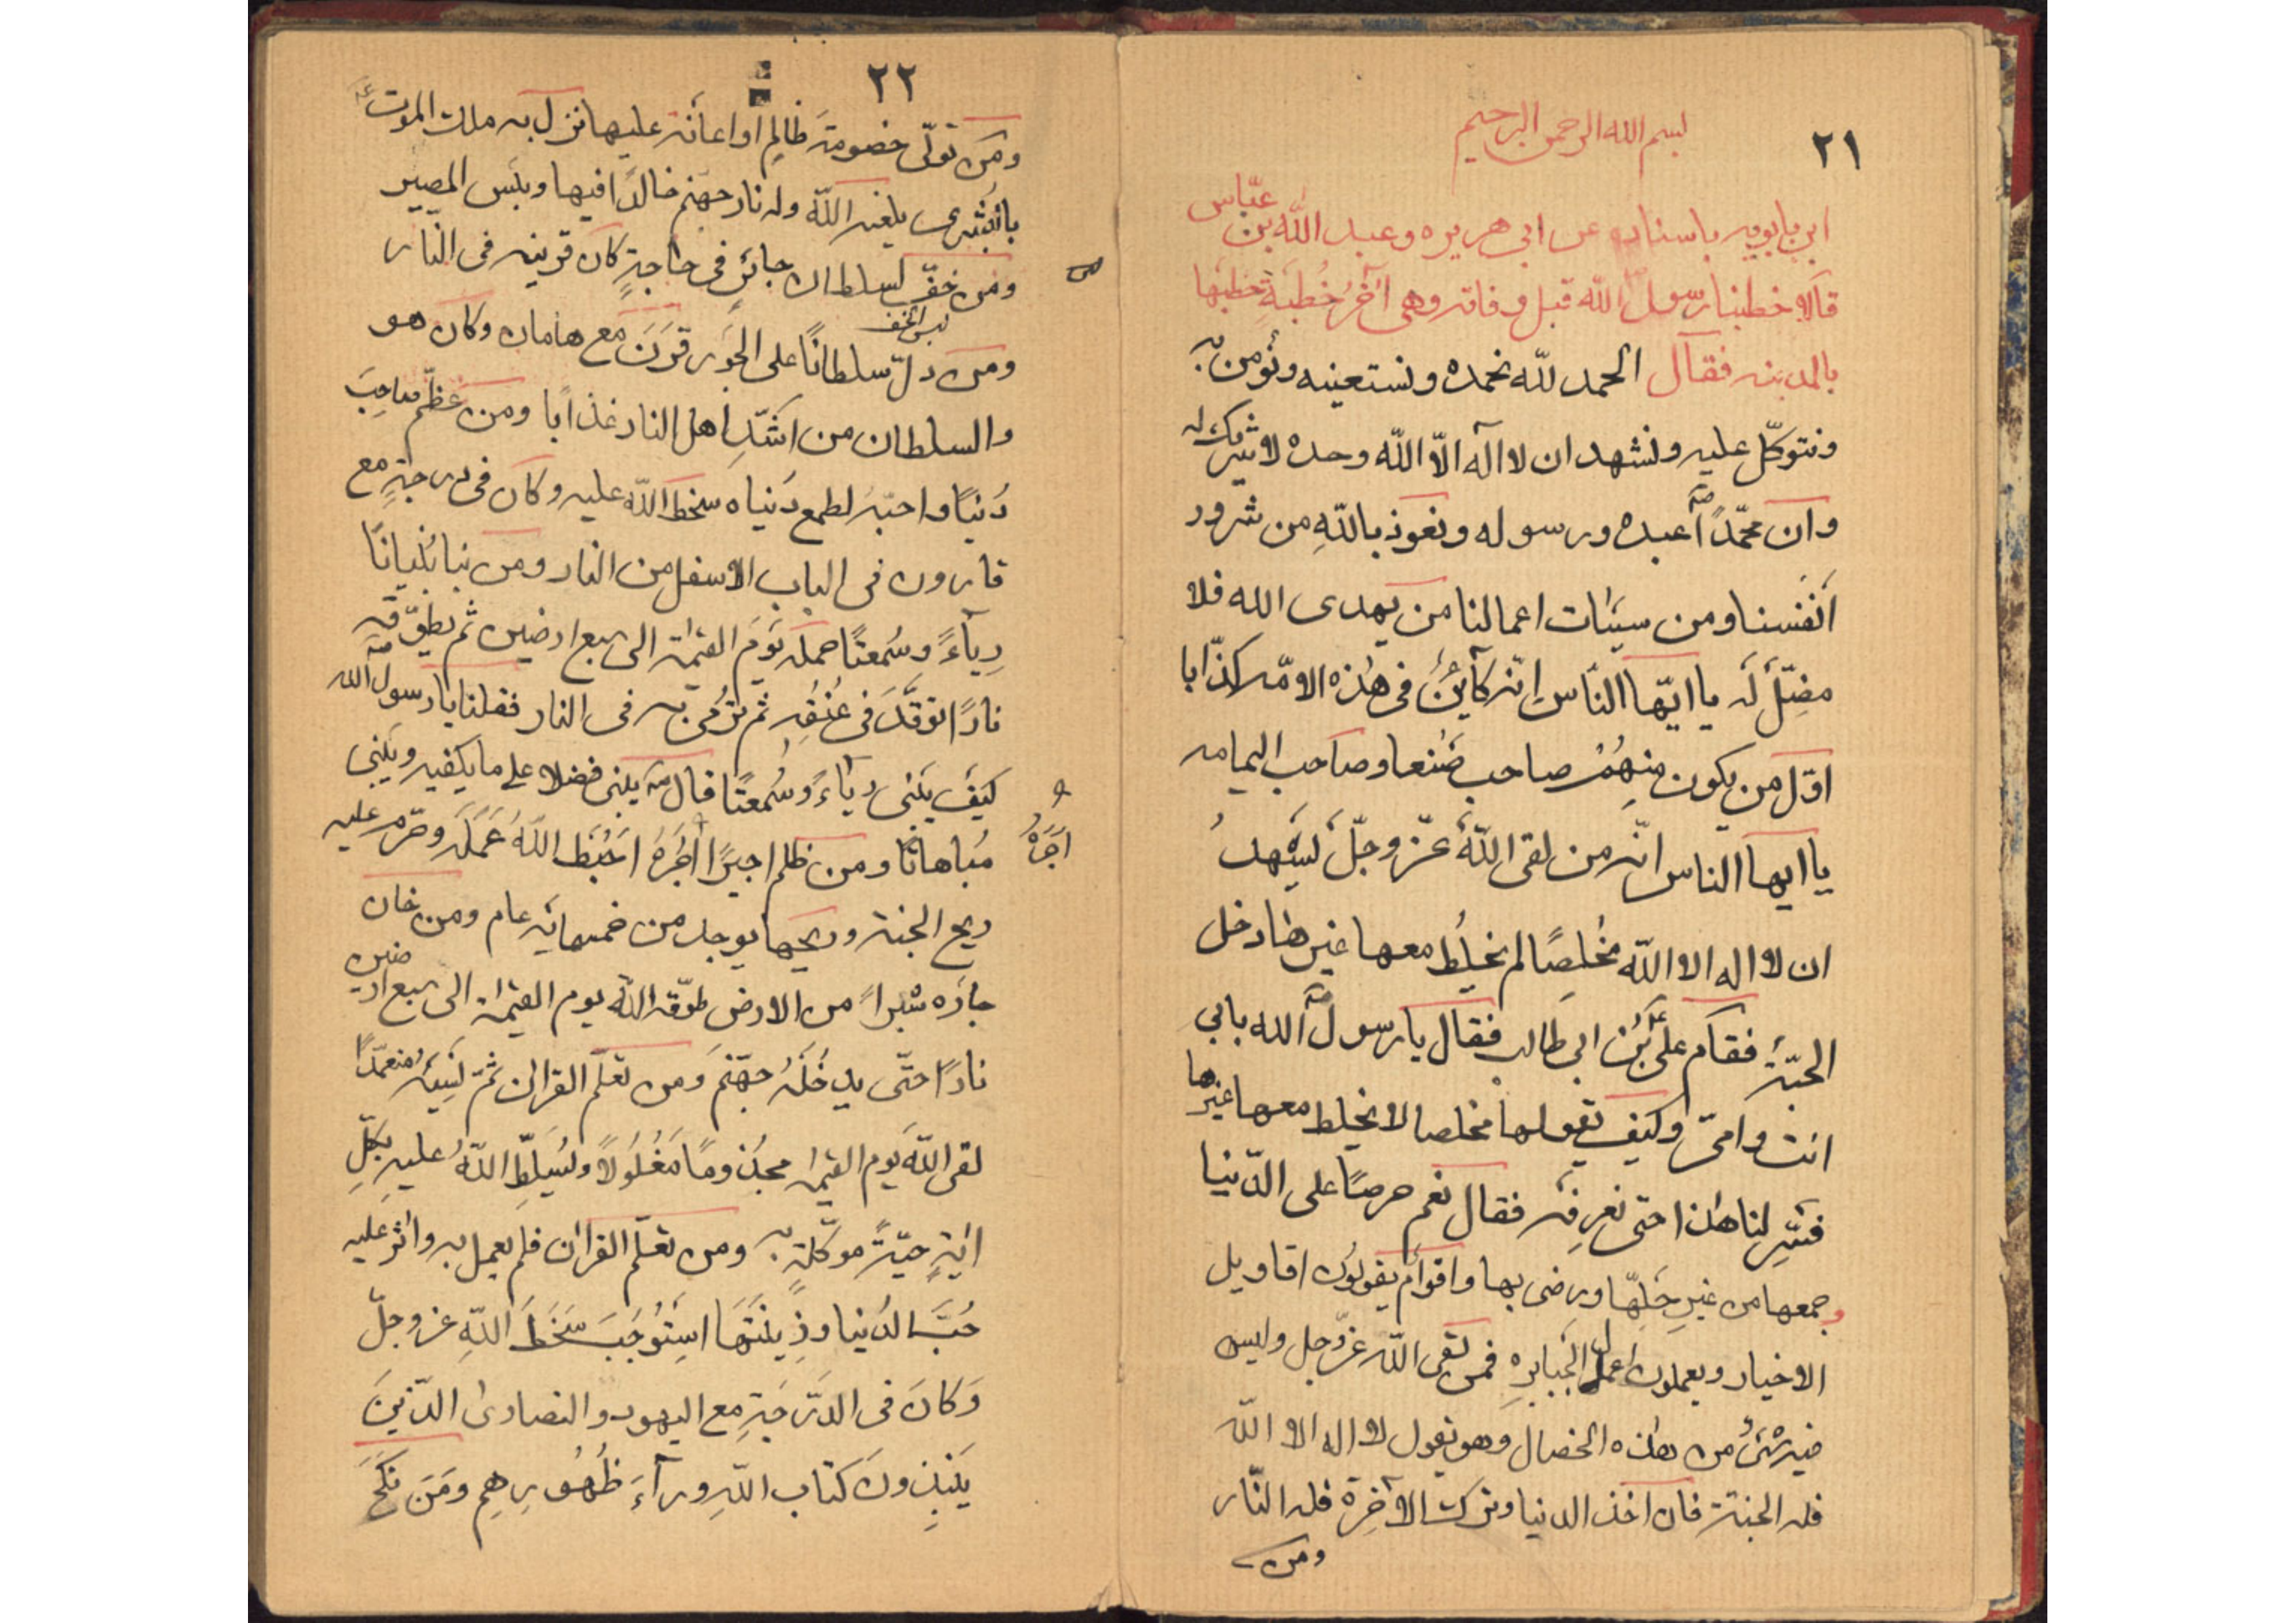 ٢١
بسم الله الرحمن الرحيم
ابن بابويه باسناده عن ابى هريره وعبد الله بن عبّاس
قالا خطبنا رسول الله قبل وفاته وهى آخر خُطبَةٍ خطبها
بالمدينه فقال الحمد للّه نحمده ونستعينه ونؤمن به
ونتوكّل عليه ونشهد ان لا اله الّا اللّه وحده لا شريك له
وان محمّدًا عبده ورسوله ونعوذ باللّهِ من شرور
انَفسنا ومن سيئات اعمالنا من يهدى الله فلا
مضِلّ لَه يا ايّها النّاس انّه كآئنٌ فى هٰذه الامّه كذّابا
اوّل من يكون مِنهُمْ صاحب صَنعا وصاحب اليمامه
يا ايها الناس انّه من لقى اللّهَ عزّ وجلّ يَشهدُ
ان لا اله الا اللّه مخُلصًا لم يخلِط معها غيرها دخل
الجنّةَ فقام علىّ بْن ابى طالب فقال يا رسول الله بابي
انت وامّى وكيف يقولها مخلصا لا يخلط معها غيرها
فسِّر لنا هٰذا حتى نعرِفَه فقال نعم حرصًا على الدّنيا
وجمعها من غيرِ حَلِّها ورضى بها واقوامٌ يقولون اقاويل
الاخيار ويعملون اعمال الجَبابرِه فمن لقى اللّه عزّ وجل وليس
فيه شئٌ من هٰذه الخصال وهو يقول لا اله الا اللّه
فله الجنّة فان اخذ الدنيا وترك الآخِرة فله النّار
ومن
٢٢
ومَن تولّى خصومةَ ظالِمٍ او اعانَه عليها نزل به ملك الموت
بالبُشرى بلعنه اللّه وله نار جهنم خالدًا فيها وبئس المصير
ومن خفّ لسلطان جائرٍ فى حاجةٍ كان قرينه فى النّار
ومن دلّ سلطانًا على الجَور قَرَنَ مع هامان وكان هو
والسلطان من اشَدِّ اهل النار عذابًا ومن عَظّم صاحِبَ
دُنيًا واحبّهُ لطمع دُنياه سخط اللّه عليه وكان فى درجةٍ مع
قارون فى الباب الاسفل من النار ومن بنا بُنيانًا
رِياءً وسُمعتًا حمله يَومَ القيٰمة الى سبع ارضين ثم يطوّقه
نارًا توقّدَ فى عُنُقِه ثم يُرمى به فى النار فقلنا يا رسول الله
كيَفَ يَبنى رياءً وسُمعتًا قال يبنى فضلا على ما يكفيه ويَبنى
مُباهاتًا ومن ظلم اجيرًا اَجْرهُ احَبَط اللّهُ عَمَلَه وحرّم عليه
ريح الجنة وريحها يوجد من خمسمائة عام ومن خان
جارَه شبراً من الارض طوّقه اللّه يوم القيٰمة الى سبع ارضين
نارًا حتّى يدخَلَهُ جهّنم وَمن تعلّم القرآن ثمّ نَسِيَهُ متعمّدًا
لقى اللّه يَوم القيٰمة مجذومًا مَغْلُولًا ويُسَلِّطِ اللّهُ عليهِ بِكلِّ
ايَةٍ حيّةً موكّلةٍ به ومن تعلّم القرآن فلم يعمل به واثَر عَليه
حُبَّ الدُنيا وزِينَتَهَا استَوُجَبَ سَخَطَ اللّهِ عزوجلّ
وَكانَ فى الدّرجَةِ مع اليهود والنصارى الّذينَ
يَنبِذونَ كتاب اللّهِ ورآءَ ظُهُورِهِم ومَن نكَحَ